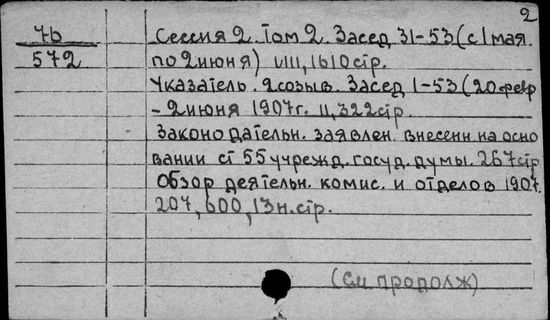 2
7b
572
Сессия 2. Том 2. Засед 31-53 (с 1 мая.
по 2 июня) VIII, 1610 стр.
Указатель. 2 созыв. Засед 1-53 (20 февр
- 2 июня 1907 г. II, 322 стр.
Законодательн. заявлен. внесенн на осно
вании ст 55 учрежд. госуд. думы. 267 стр
Обзор деятельн. комис. и отделов 1907.
207, 600, 13 н. стр.
(см продолж)